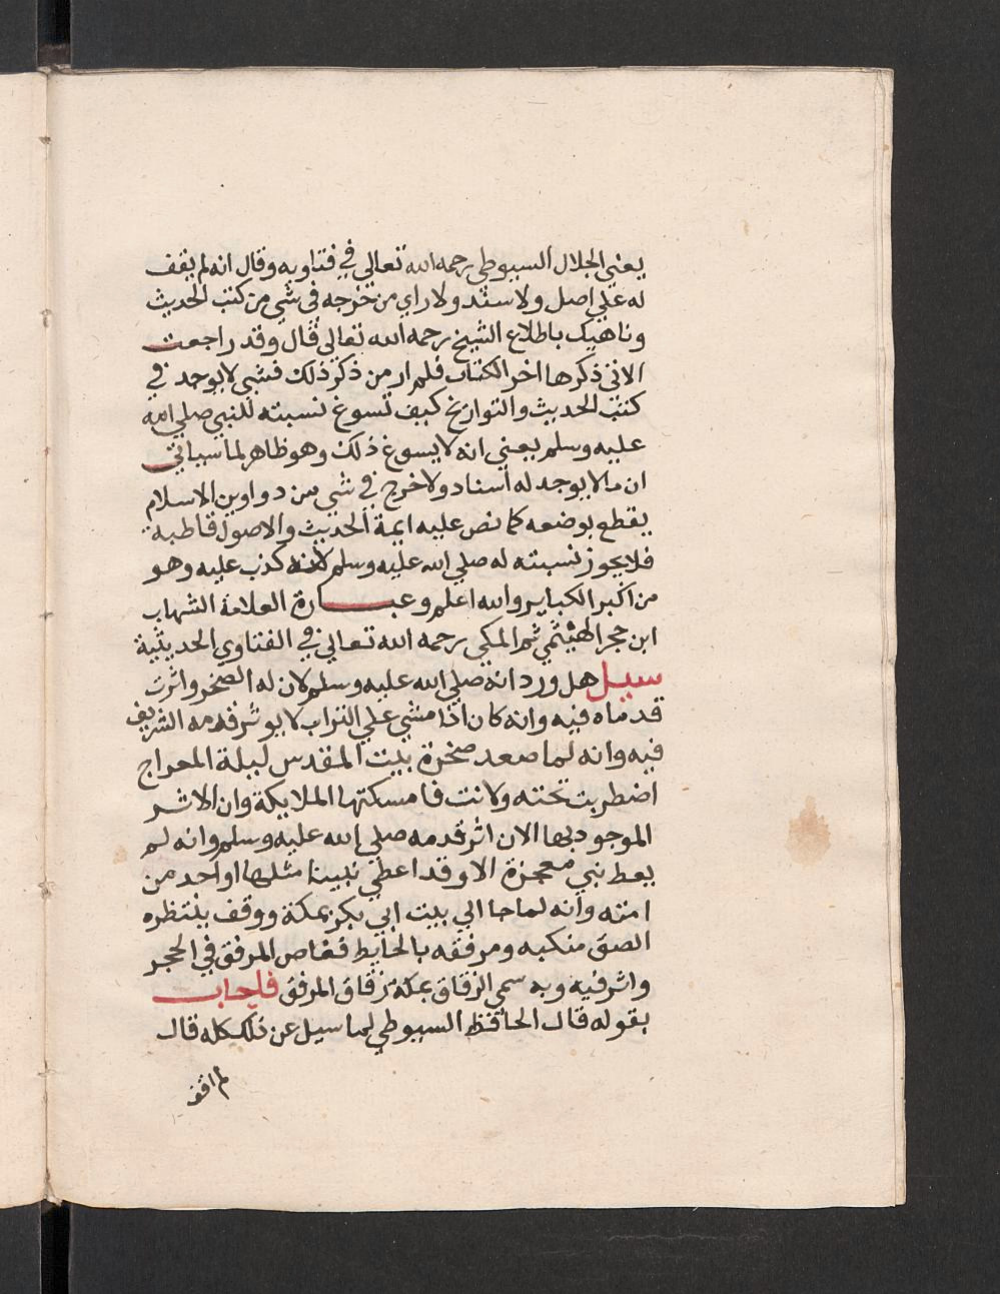 يعني الجلال السيوطي رحمه الله تعالي في فتاويه وقال انه لم يقف
له علي اصل ولا سند ولا راي من خرجه في شي من كتب الحديث
وناهيك باطلاع الشيخ رحمه الله تعالي قال وقد راجعت
الاتي ذكرها اخر الكتاب فلم ار من ذكر ذلك فشي لا يوجد في
كتب الحديث والتواريخ كيف تسوغ نسبته للنبي صلي الله
عليه وسلم يعني انه لا يسوغ ذلك وهو ظاهر لما سياتي
ان ما لا يوجد له اسناد ولا خرج في شي من دواوين الاسلام
يقطع بوضعه كما نص عليه ايمة الحديث والاصول قاطبة
فلا يجوز نسبته له صلي الله عليه وسلم لانه كذب عليه وهو
من اكبر الكباير والله اعلم وعبارة العلامة الشهاب
ابن حجر الهيثمي ثم المكي رحمه الله تعالي في الفتاوي الحديثية
سيل هل ورد انه صلي الله عليه وسلم لان له الصخر واثرت
قدماه فيه وانه كان اذا مشي علي التراب لا يوثر قدمه الشريف
فيه وانه لما صعد صخرة بيت المقدس ليلة المعراج
اضطربت تحته ولانت فامسكتها الملايكة وان الاثر
الموجود بها الان اثر قدمه صلي الله عليه وسلم وانه لم
يعط نبي معجزة الا وقد اعطي نبينا مثلها او احد من
امته وانه لما جا الي بيت ابي بكر بمكة ووقف ينتظره
الصق منكبه ومرفقه بالحايط فغاص المرفق في الحجر
واثر فيه وبه سمي الزقاق بمكة زقاق المرفق فاجاب
بقوله قال الحافظ السيوطي لما سيل عن ذلك كله قال
لم اقف